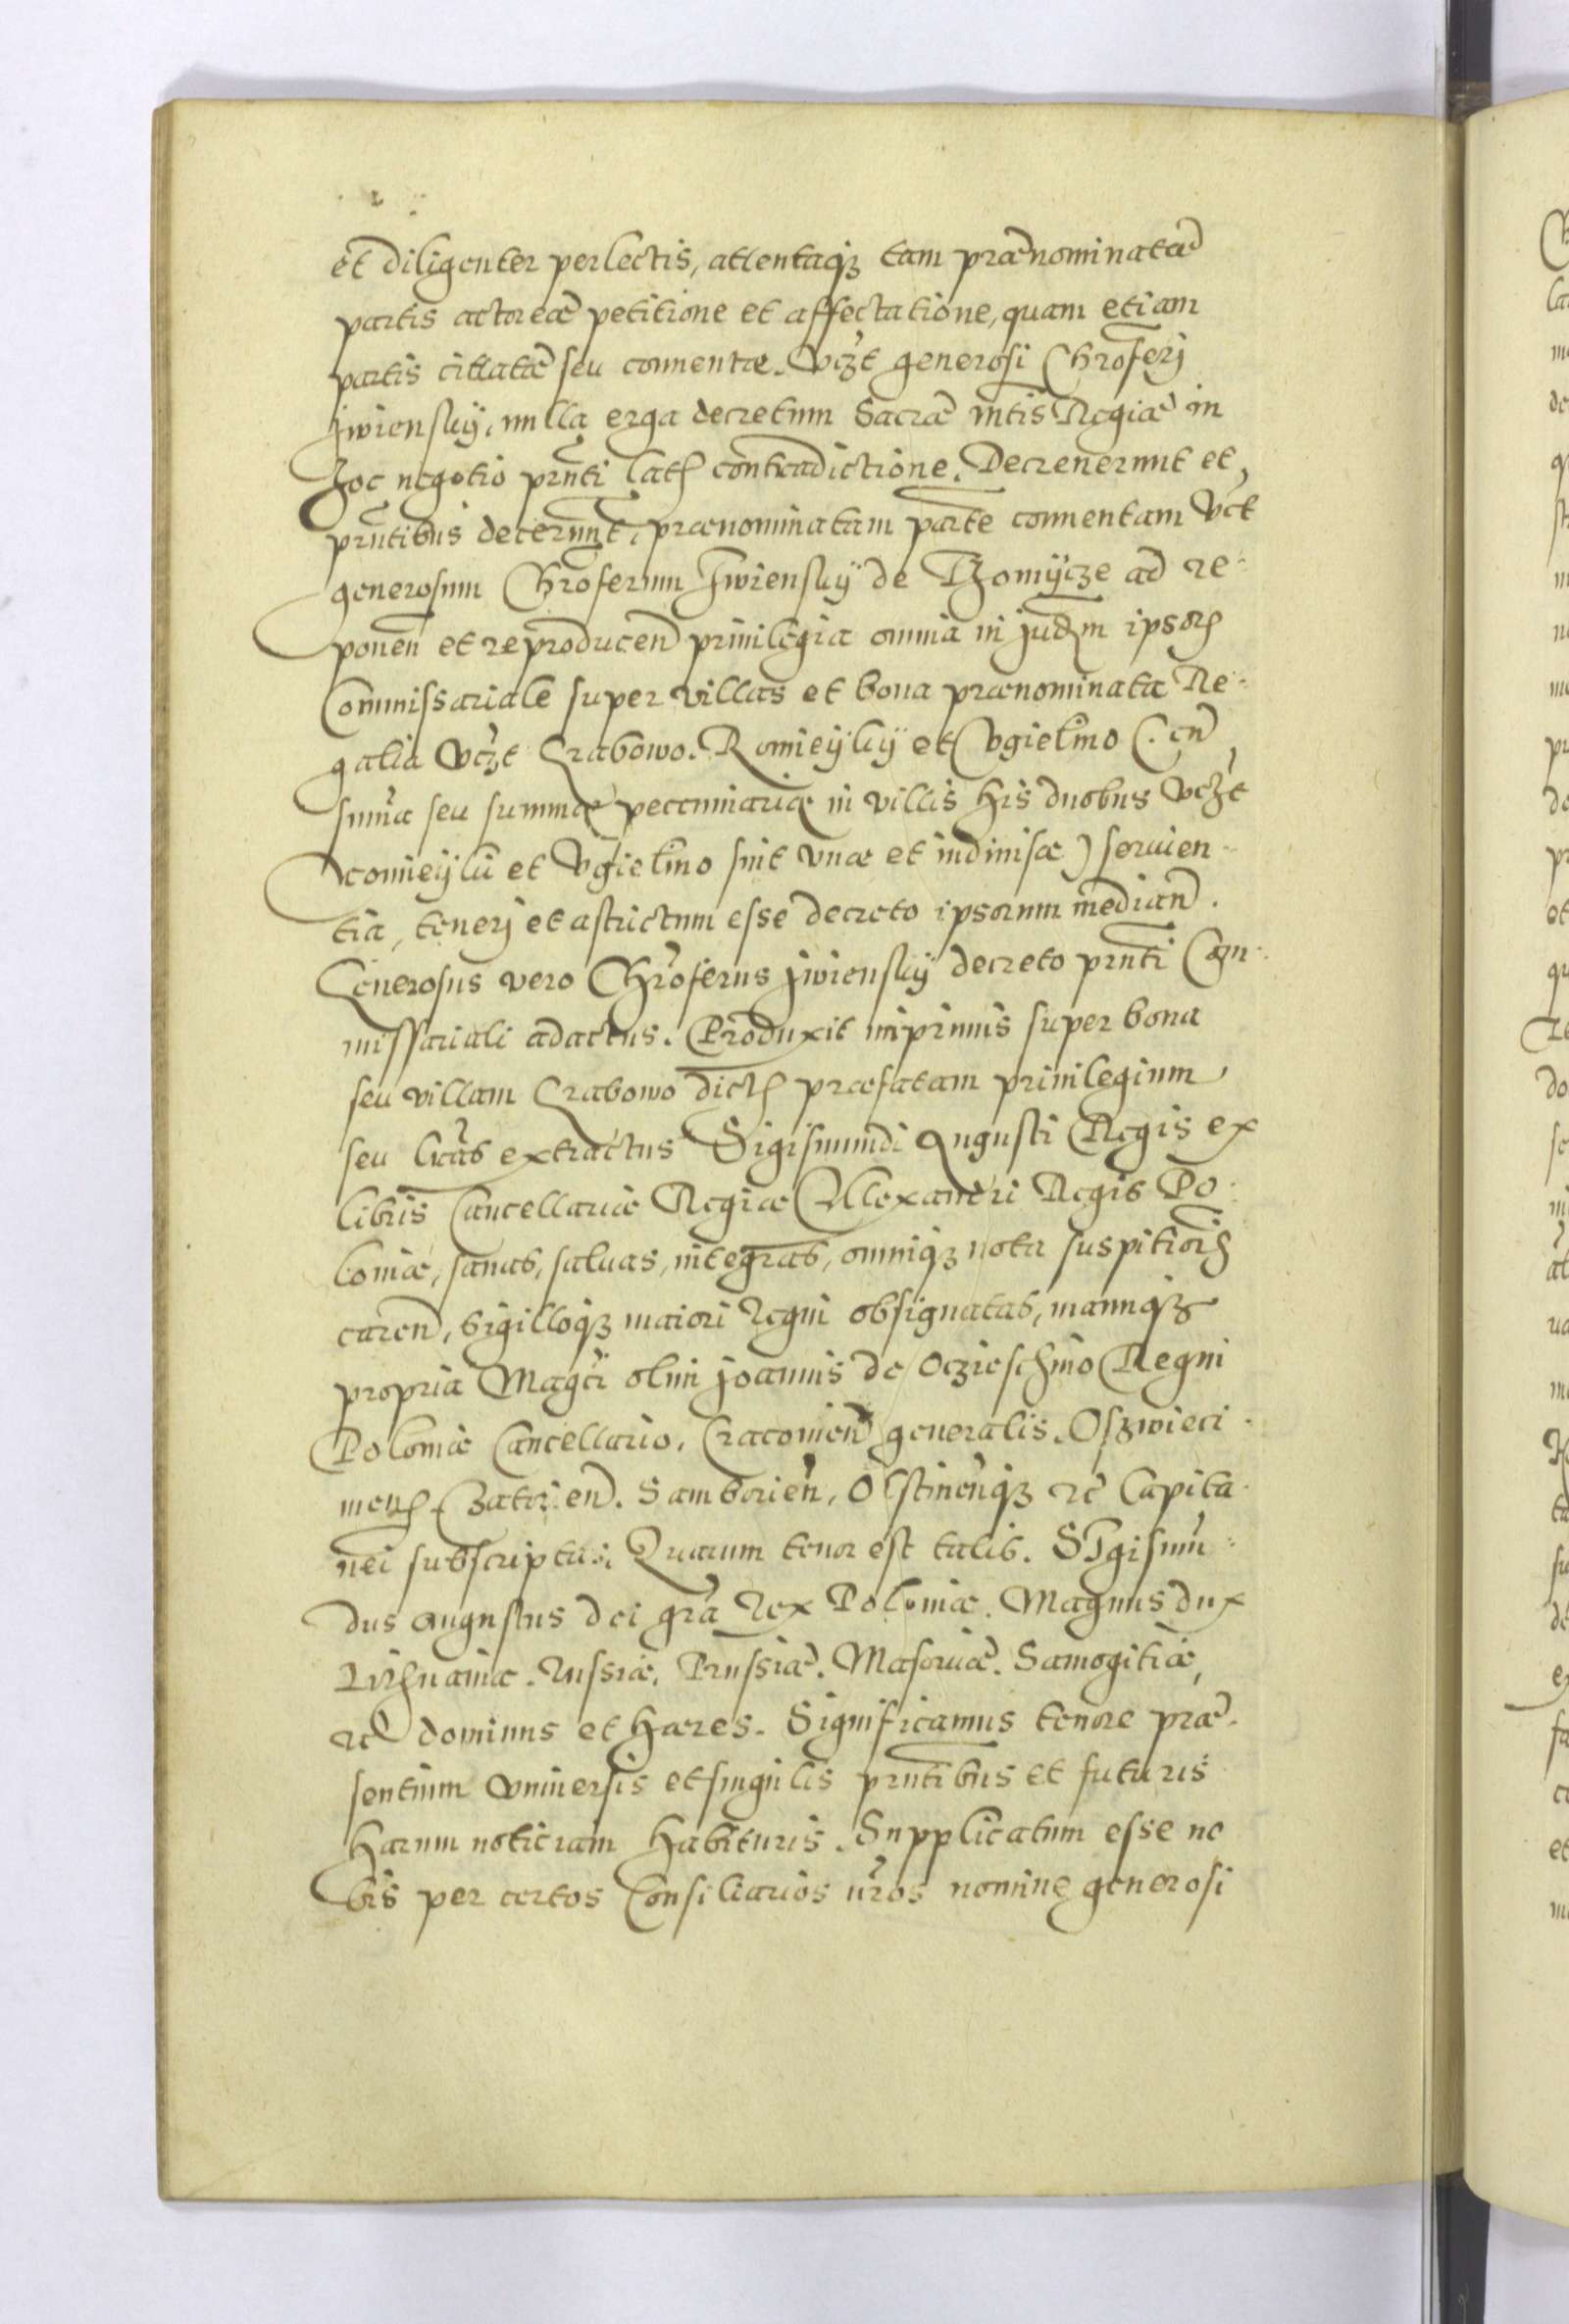 et diligenter perlectis, attentaq₃ tam prænominatæ
partis actoreæ petitione et affectatione, quam etiam
partis cittatæ seu conuentæ. Vcz̃t generosi Chrõferj
Jwienskÿ, nulla erga decretum Sacræ mtis Regiæ in
hoc negotio pr̃nti lath contradictione. Decreuerunt et
pr̃ntibus decernũt, prænominatam parte conuentam vc̃t
generosum Chrõferum Jwienskÿ de Tzomÿcze ad re-
ponen̄ et reproducen̄ priuilegia omnia in juđm ipsorh
Commissariale super villas et bona prænominata Re-
galia vcz̃t Grabowo. Romieÿkÿ et Vgielino (: cũ
sum̃a seu summæ pecuniariæ in villis his duobus vcz̃t
Romieÿkÿ et Vgielino sint vnæ et indiuisæ) seruien-
tia, tenerj et astrictum esse decreto ipsorum median̄.
Generosus vero Chrõferus Jwienskÿ decreto pr̃nti Com-
missariali adactus. Produxit inprimis super bona
seu villam Grabowo dicth præfatam priuilegium
seu lr̃as extractus Sigismundi Augusti Regis ex
libris Cancellariæ Regiæ Allexandri Regis Po-
loniæ, sanas, saluas, integras, omniq₃ nota suspitiorh
caren̄, sigilloq₃ maiori Regni obsignatas, manuq₃
propria Magc̃i olim Joannis de Oczieschino Regni
Poloniæ Cancellario, Cracouien̄ generalis. Oszwieci-
mens. Zatorien̄. Samborien̄, Olstinen̄q₃ rc̃ Capita-
nei subscriptas. Quarum tenor est talis. SIgismũ-
dus Augustus dei gr̃a Rex Poloniæ. Magnus dux
Lithuaniæ. Russiæ, Prussiæ. Masouiæ. Samogitiæ,
rc̃ dominus et hæres. Significamus tenore præ-
sentium vniuersis et singulis pr̃ntibus et futuris
harum noticiam habituris. Supplicatum esse no
bis per certos Consiliarios nr̃os nomine generosi